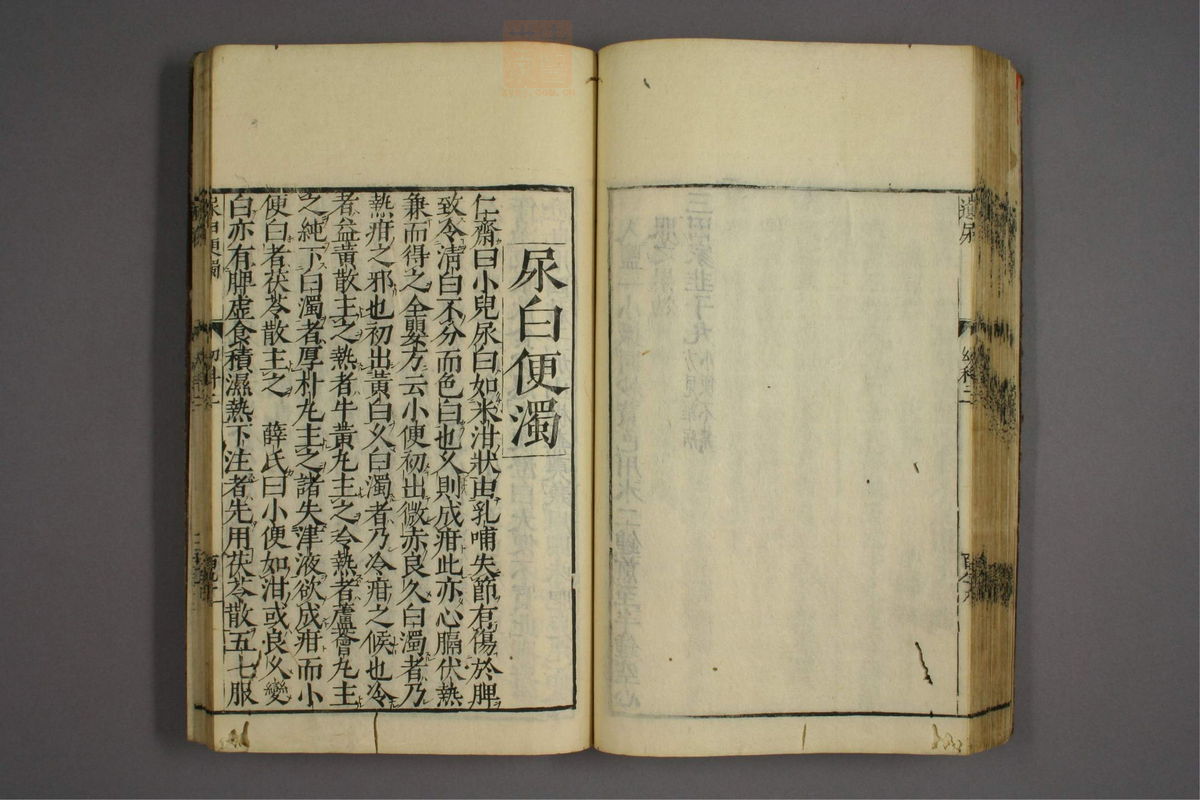 遺尿
幼科二
尿白便濁
仁齋曰小兒尿白如米泔狀由乳哺失節有傷於脾
致令清白不分而色白也久則成疳此亦心膈伏熱
兼而得之全嬰方云小便初出微赤良久白濁者乃
熱疳之邪也初出黃白久白濁者乃冷疳之候也冷
者益黃散主之熱者牛黃丸主之冷熱者蘆薈丸主
之純下白濁者厚朴丸主之諸失津液欲成疳而小
便白者茯苓散主之　薛氏曰小便如泔或良久變
白亦有脾虛食積濕熱下注者先用茯苓散五七服
尿白便濁
幼科二